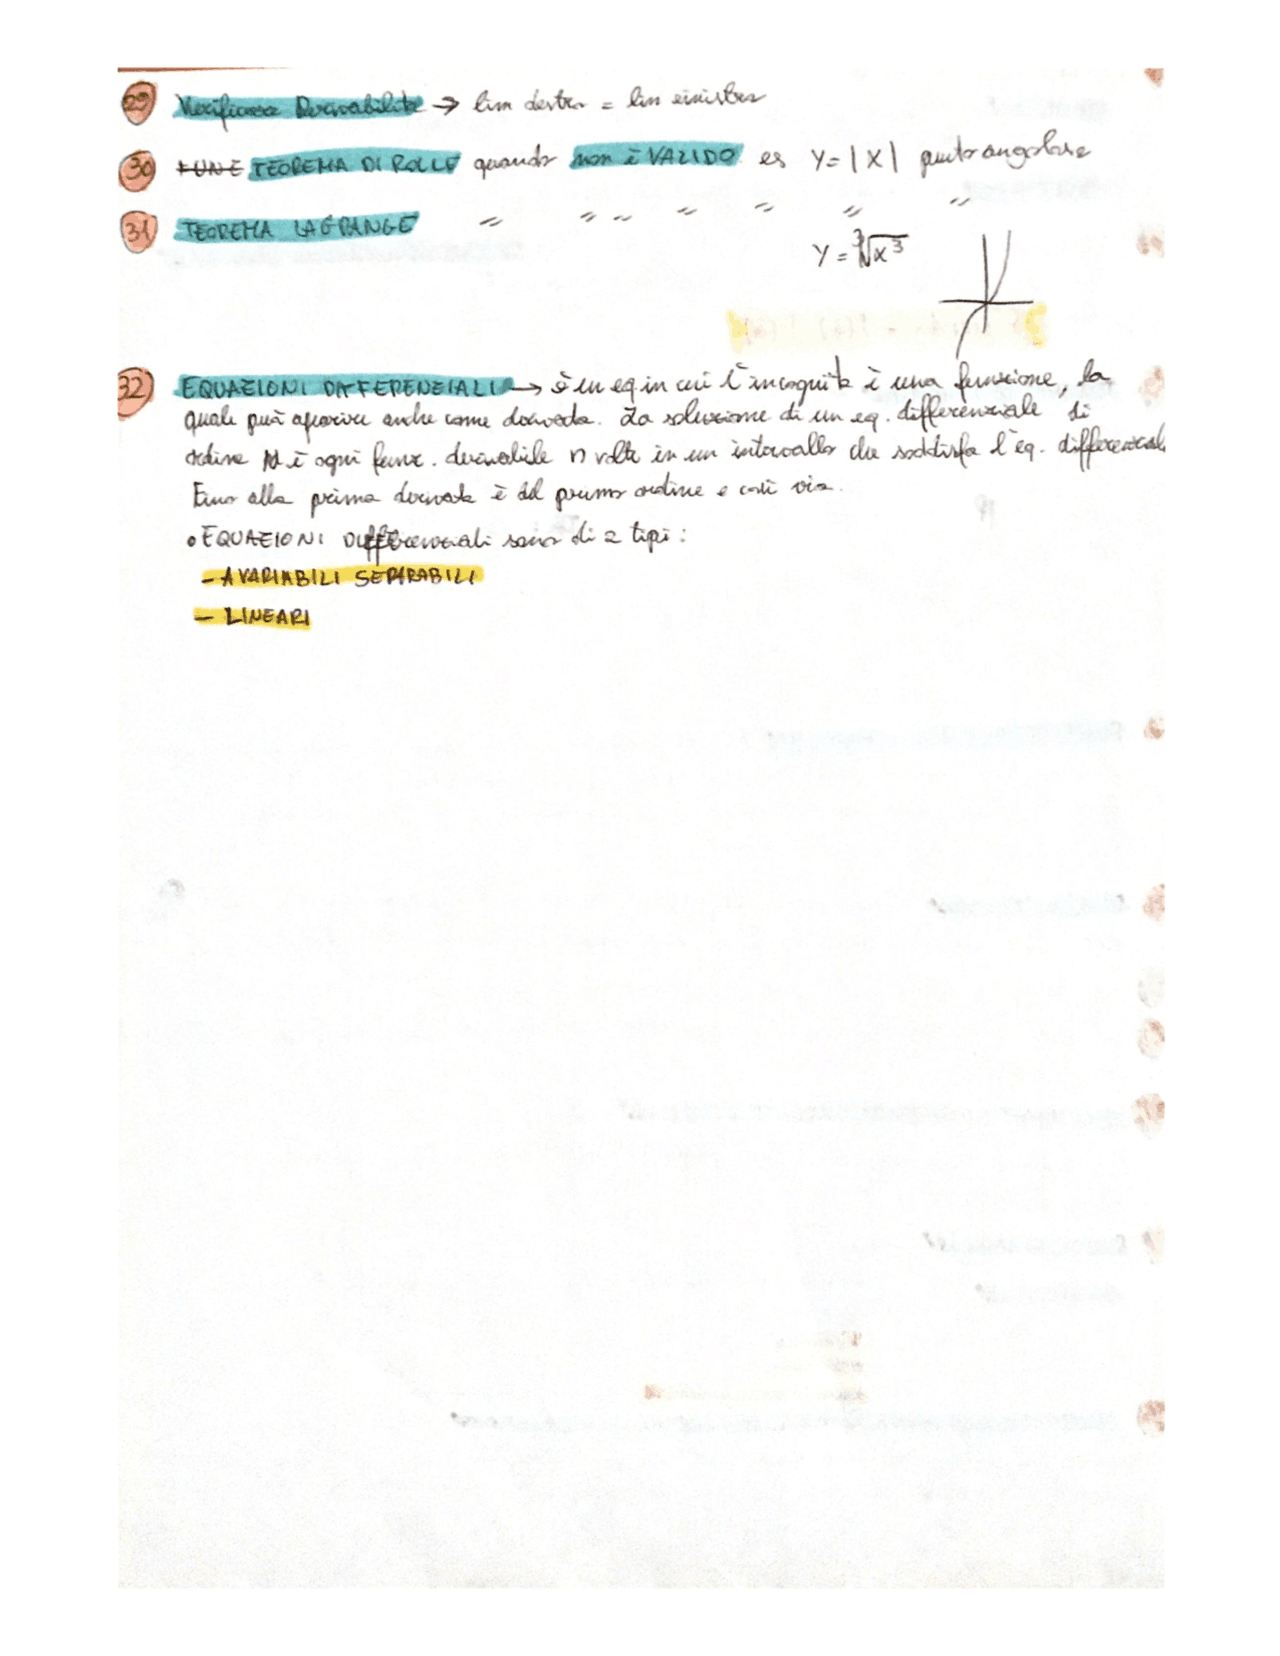 29 Verificare Derivabilità → lim destro = lim sinistro
30 FUNZ TEOREMA DI ROLLE quando non è VALIDO es y = |x| punto angolare
31 TEOREMA LAGRANGE " " " " " " "
y = ∛x³
32 EQUAZIONI DIFFERENZIALI → è un eq in cui l'incognita è una funzione, la
quale può apparire anche come derivata. La soluzione di un eq. differenziale di
ordine N è ogni funz. derivabile n volte in un intervallo che soddisfa l'eq. differenziale
Fino alla prima derivata è del primo ordine e così via.
• EQUAZIONI Differenziali sono di 2 tipi:
- A VARIABILI SEPARABILI
- LINEARI